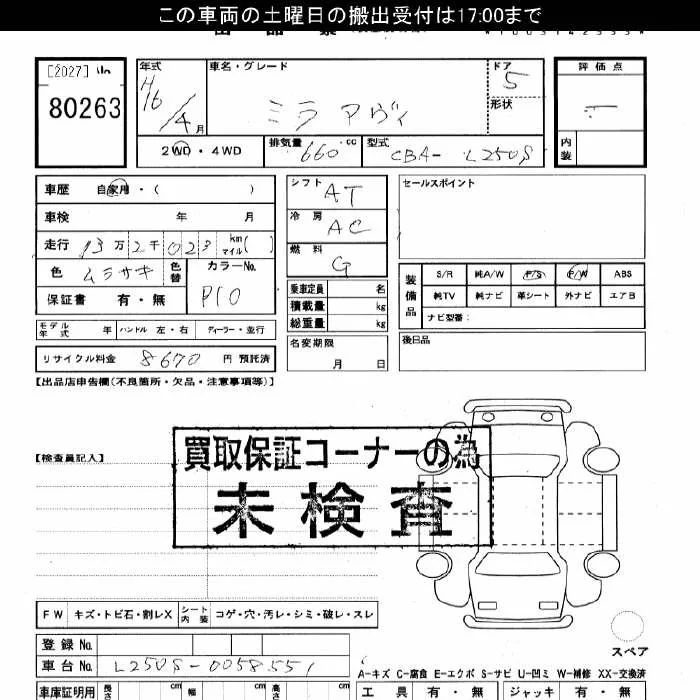 この車両の土曜日の搬出受付は17:00まで
[2027]
80263
年式 車名・グレード ドア 評価点
H16/4月 ミラ アヴィ 5
形状
2WD・4WD 排気量 660 cc 型式 CBA- L250S 内装
車歴 自家用・( )
シフト AT
セールスポイント
車検 年 月
冷房 AC
走行 13万2千023 km マイル( )
燃料 G
色 ムラサキ 色替 カラーNo. P10
保証書 有・無
乗車定員 名
積載量 kg
総重量 kg
装備品 S/R 純A/W P/S P/W ABS
純TV 純ナビ 革シート 外ナビ エアB
ナビ型番:
モデル年式 年 ハンドル 左・右 ディーラー・並行
名変期限 月 日
後日品
リサイクル料金 8670 円 預託済
【出品店申告欄(不良箇所・欠品・注意事項等)】
【検査員記入】
買取保証コーナーの為
未検査
FW キズ・トビ石・割レX シート内装 コゲ・穴・汚レ・シミ・破レ・スレ
スペア
登録No.
車台No. L250S-0058551
A-キズ C-腐食 E-エクボ S-サビ U-凹ミ W-補修 XX-交換済
車庫証明用 長さ cm 幅 cm 高さ cm 工具 有・無 ジャッキ 有・無